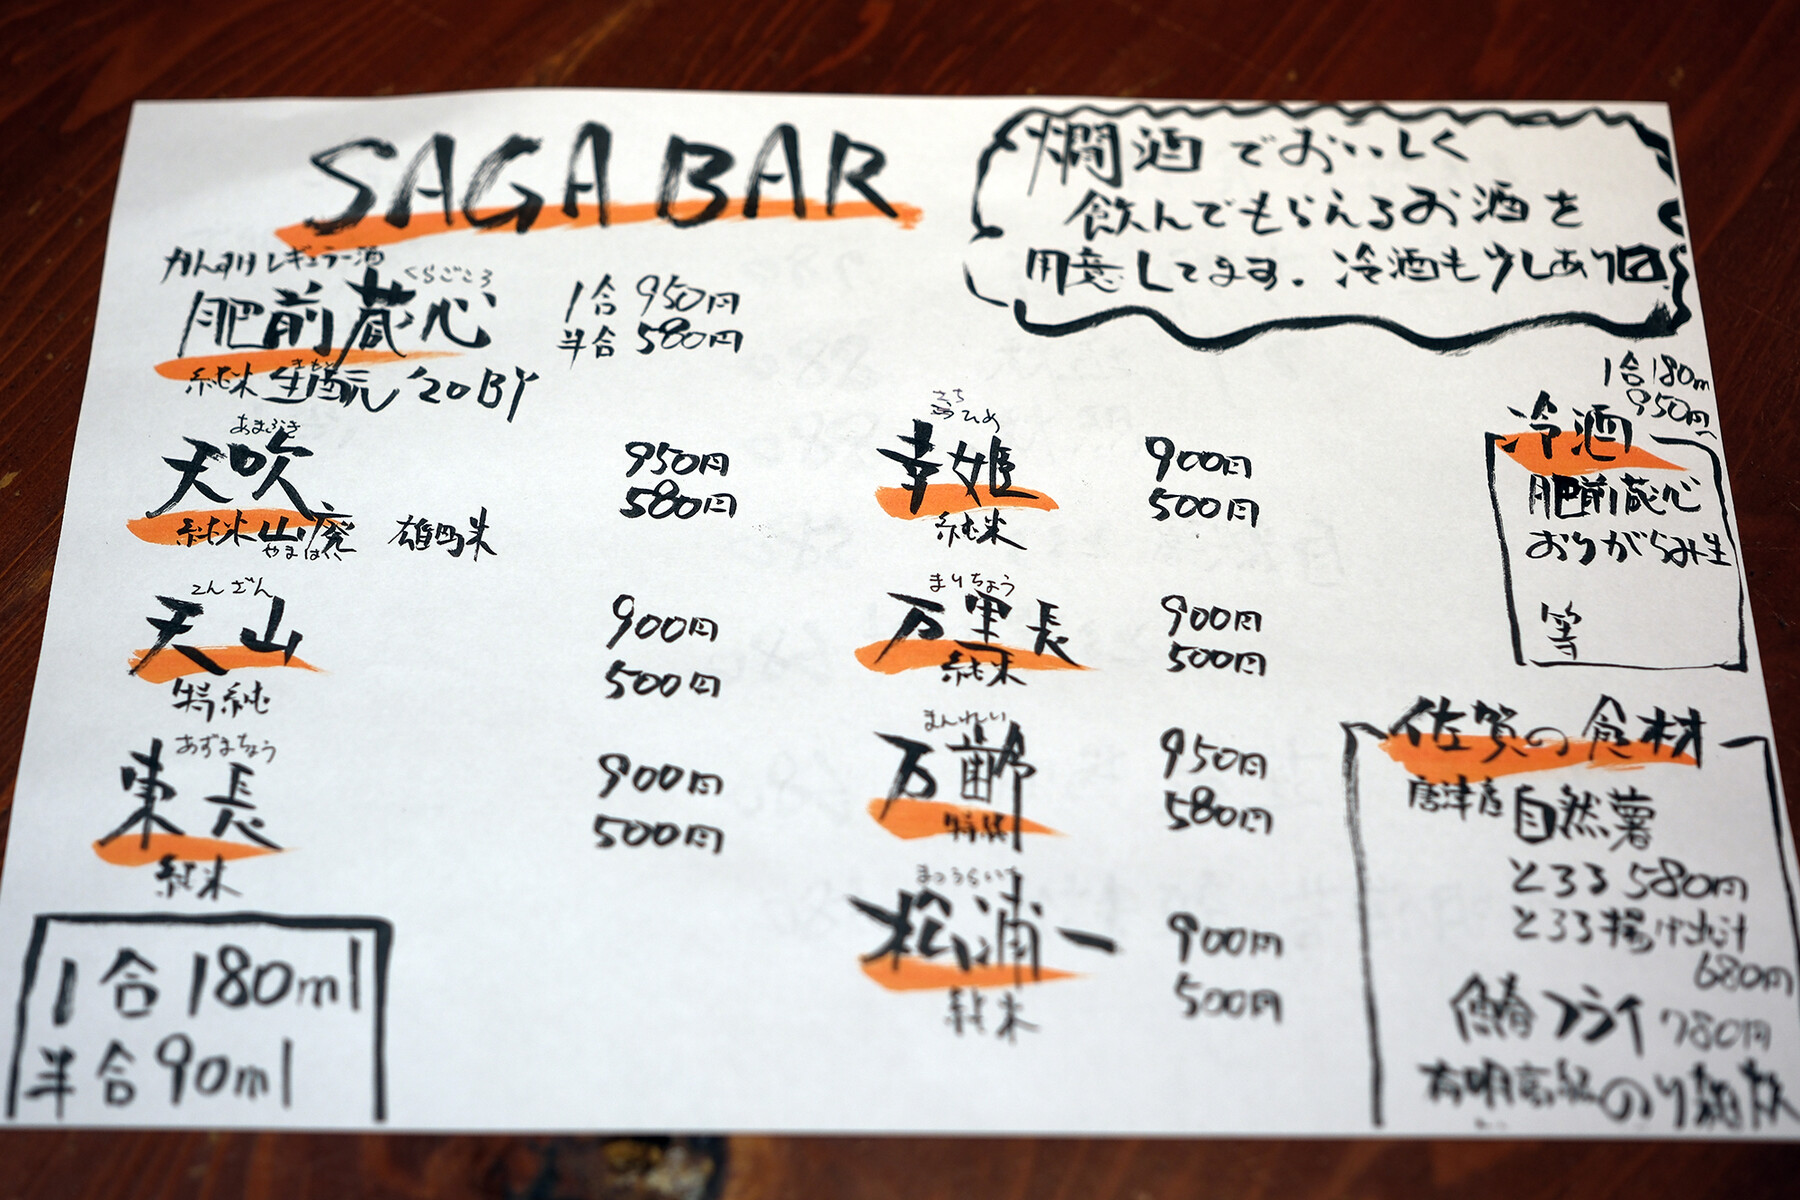 SAGA BAR
燗酒でおいしく
飲んでもらえるお酒を
用意してます。冷酒も少しあり〼
かんすけレギュラー酒
くらごころ
肥前蔵心
1合 950円
半合 580円
きもと
純米 生酛 '20BY
あまぶき
天吹
950円
580円
純米山廃 雄町米
やまはい
てんざん
天山
900円
500円
特純
あずまちょう
東長
900円
500円
純米
1合 180ml
半合 90ml
さちひめ
幸姫
900円
500円
純米
まりちょう
万里長
900円
500円
純米
まんれい
万齢
950円
580円
特純
まつうらいち
松浦一
900円
500円
純米
1合180m
950円
冷酒
肥前蔵心
おりがらみ生
等
佐賀の食材
唐津産 自然薯
とろろ 580円
とろろ揚げ出汁
680円
鯖フライ 780円
有明高級のり